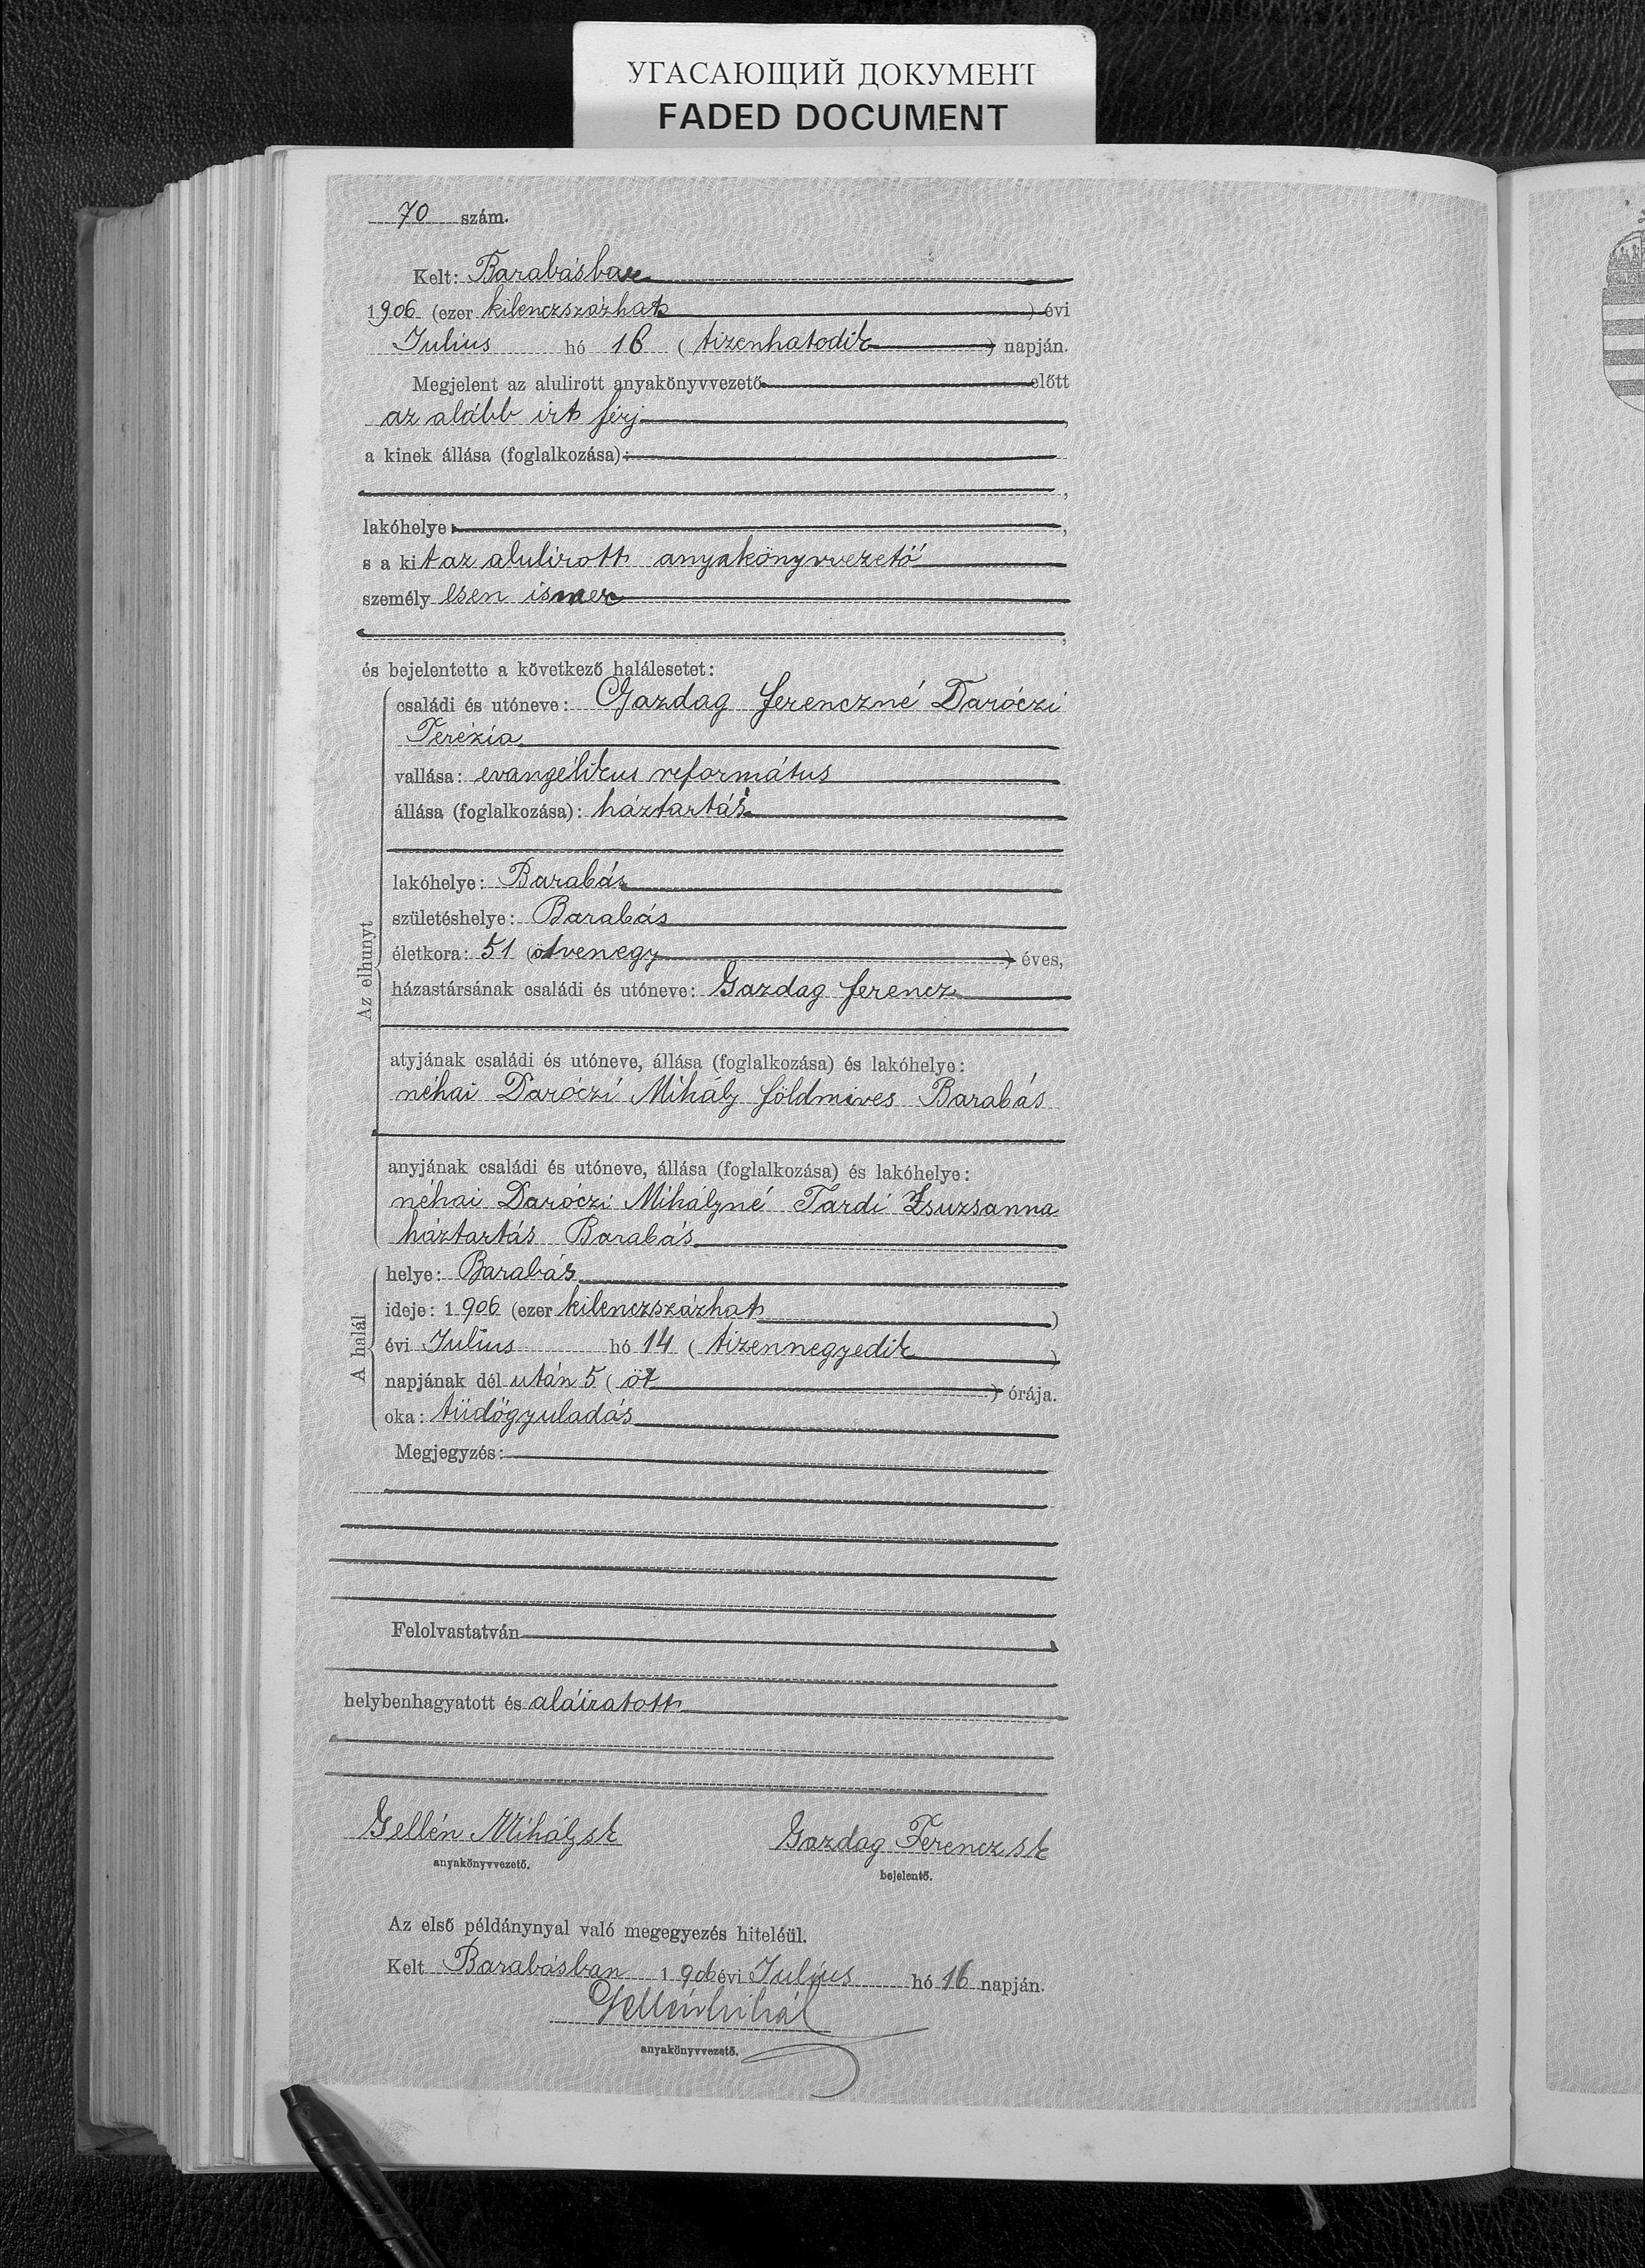 УГАСАЮЩИЙ ДОКУМЕНТ
FADED DOCUMENT
70 szám.
Kelt: Barabásban
1906 (ezer kilenczszázhat) évi
Julius hó 16 (tizenhatodik) napján.
Megjelent az alulirott anyakönyvvezető előtt
az alább irt férj,
a kinek állása (foglalkozása):
,
lakóhelye ,
s a kit az alulirott anyakönyvvezető
személyesen ismer
,
és bejelentette a következő halálesetet:
Az elhunyt
családi és utóneve: Gazdag Ferenczné Daróczi
Terézia
vallása: evangélikus református
állása (foglalkozása): háztartás
lakóhelye: Barabás
születéshelye: Barabás
életkora: 51 (ötvenegy) éves,
házastársának családi és utóneve: Gazdag Ferencz
atyjának családi és utóneve, állása (foglalkozása) és lakóhelye:
néhai Daróczi Mihály földmives Barabás
anyjának családi és utóneve, állása (foglalkozása) és lakóhelye:
néhai Daróczi Mihályné Tardi Zsuzsanna
háztartás Barabás
A halál
helye: Barabás
ideje: 1906 (ezer kilenczszázhat)
évi Julius hó 14 (tizennegyedik)
napjának dél után 5 (öt) órája.
oka: tüdőgyuladás
Megjegyzés:
Felolvastatván
helybenhagyatott és aláiratott
Gellén Mihály sk Gazdag Ferencz sk
anyakönyvvezető. bejelentő.
Az első példánynyal való megegyezés hiteléül.
Kelt Barabásban 1906 évi Julius hó 16 napján.
Gellén Mihál
anyakönyvvezető.